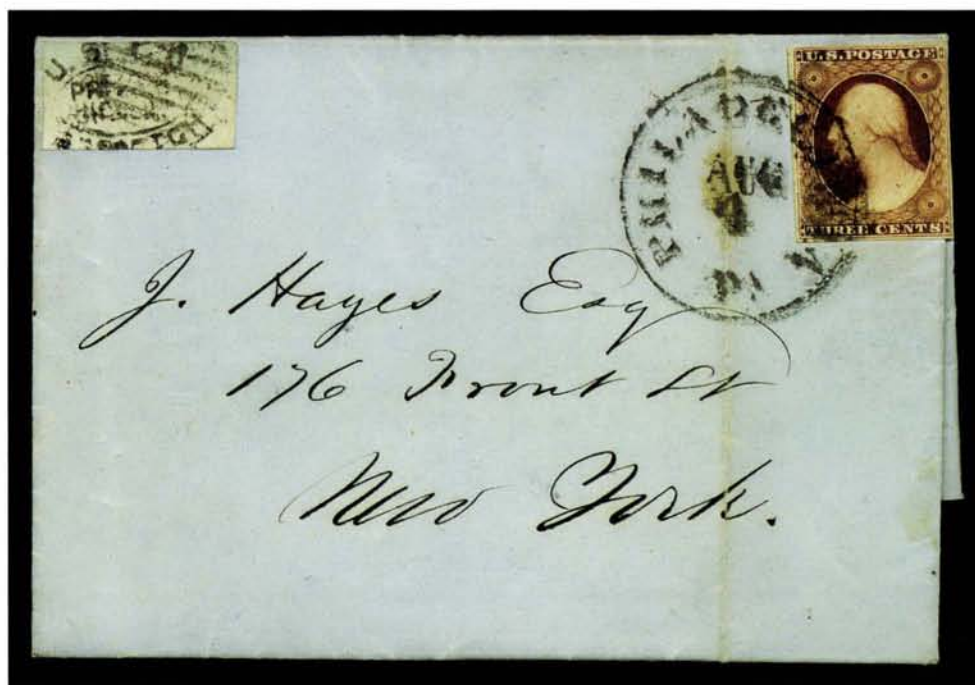 U.S. POSTAGE
THREE CENTS
PHILADE
AUG
4
J. Hayes Esq
176 Front St
New York.